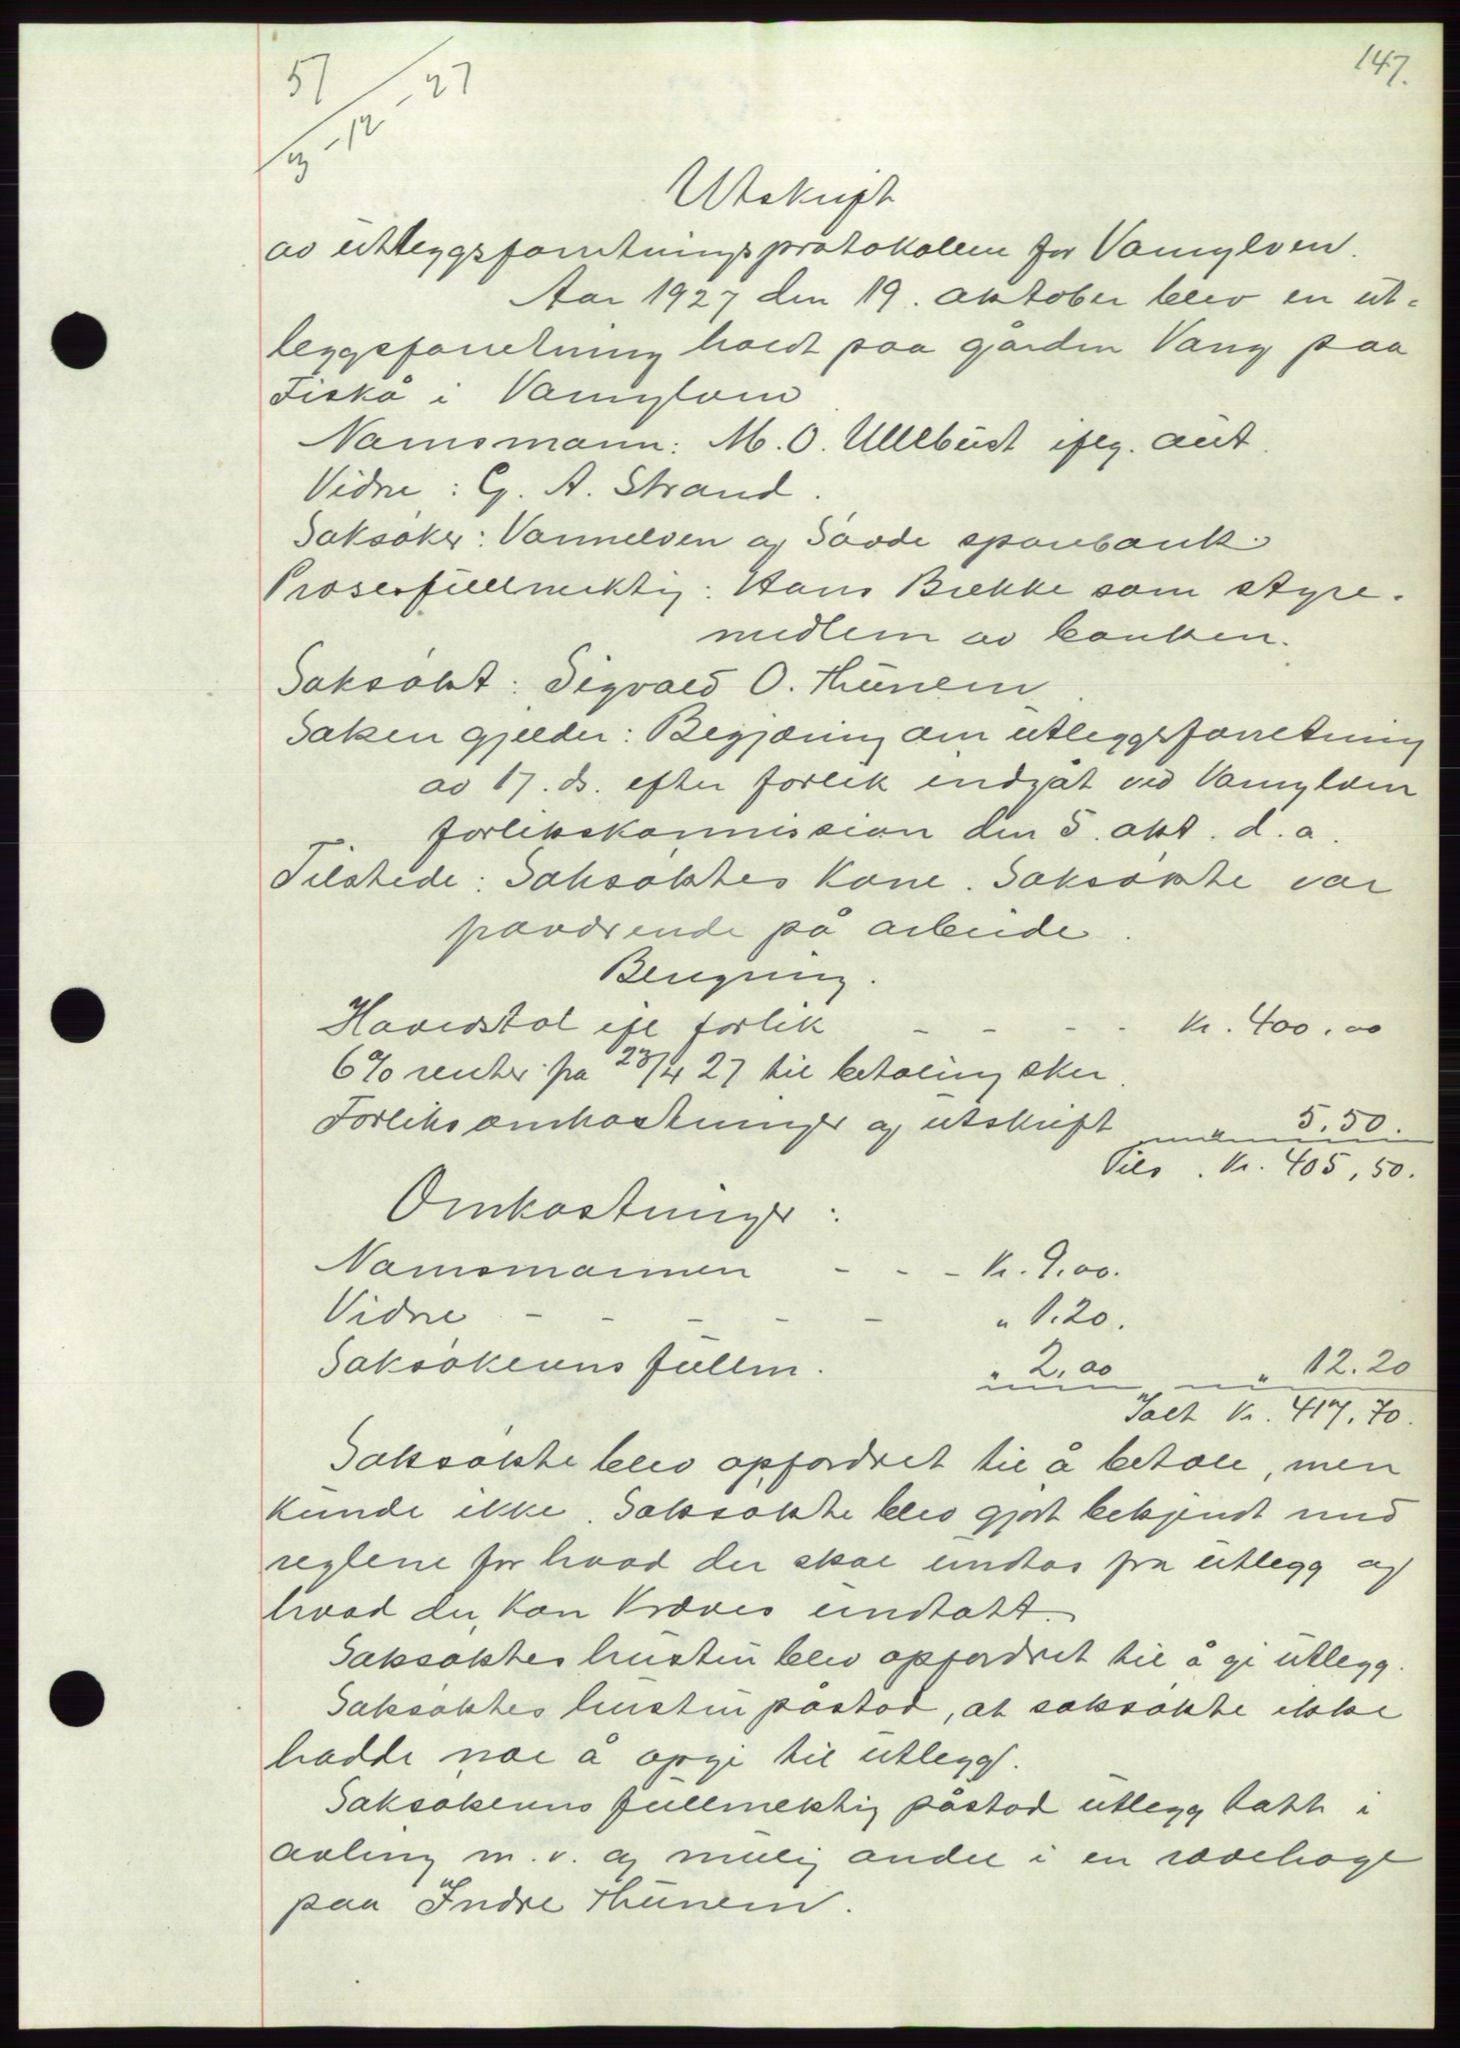 147.
51/3-12-27
Utskrift
av utleggsforretningsprotokollen for Vanylven.
Aar 1927 den 19. oktober blev en ut-
leggsforretning holdt paa gården Vang paa
Fiskå i Vanylven
Namsmann: M. O. Ullebust iflg. aut.
Vidne: G. A. Strand.
Saksøker: Vannelven og Søvde sparebank.
Prosesfullmektig: Hans Brekke som styre-
medlem av banken.
Saksøkt: Sigvald O. Thunem
Saken gjelder: Begjæring om utleggsforretning
av 17. ds. efter forlik indgåt ved Vanylven
forlikskommission den 5. okt. d. a.
Tilstede: Saksøktes kone. Saksøkte var
fraværende på arbeide.
Beregning.
Hovedstol ifl forlik - - - - kr. 400.00
6% renter fra 23/4 27 til betaling sker.
Forliksomkostninger og utskrift " 5.50.
Tils. kr. 405,50.
Omkostninger:
Namsmannen - - - kr. 9.00.
Vidne - - - - - " 1.20.
Saksøkerens fullm. " 2,00 " 12.20
Ialt kr. 417,70.
Saksøkte blev opfordret til å betale, men
kunde ikke. Saksøkte blev gjort bekjendt med
reglene for hvad der skal undtas fra utlegg og
hvad der kan kræves undtatt.
Saksøktes hustru blev opfordret til å gi utlegg.
Saksøktes hustru påstod, at saksøkte ikke
hadde noe å opgi til utlegg.
Saksøkerens fullmektig påstod utlegg tatt i
avling m. v. og mulig andel i en rævehage
paa Indre Thunem.